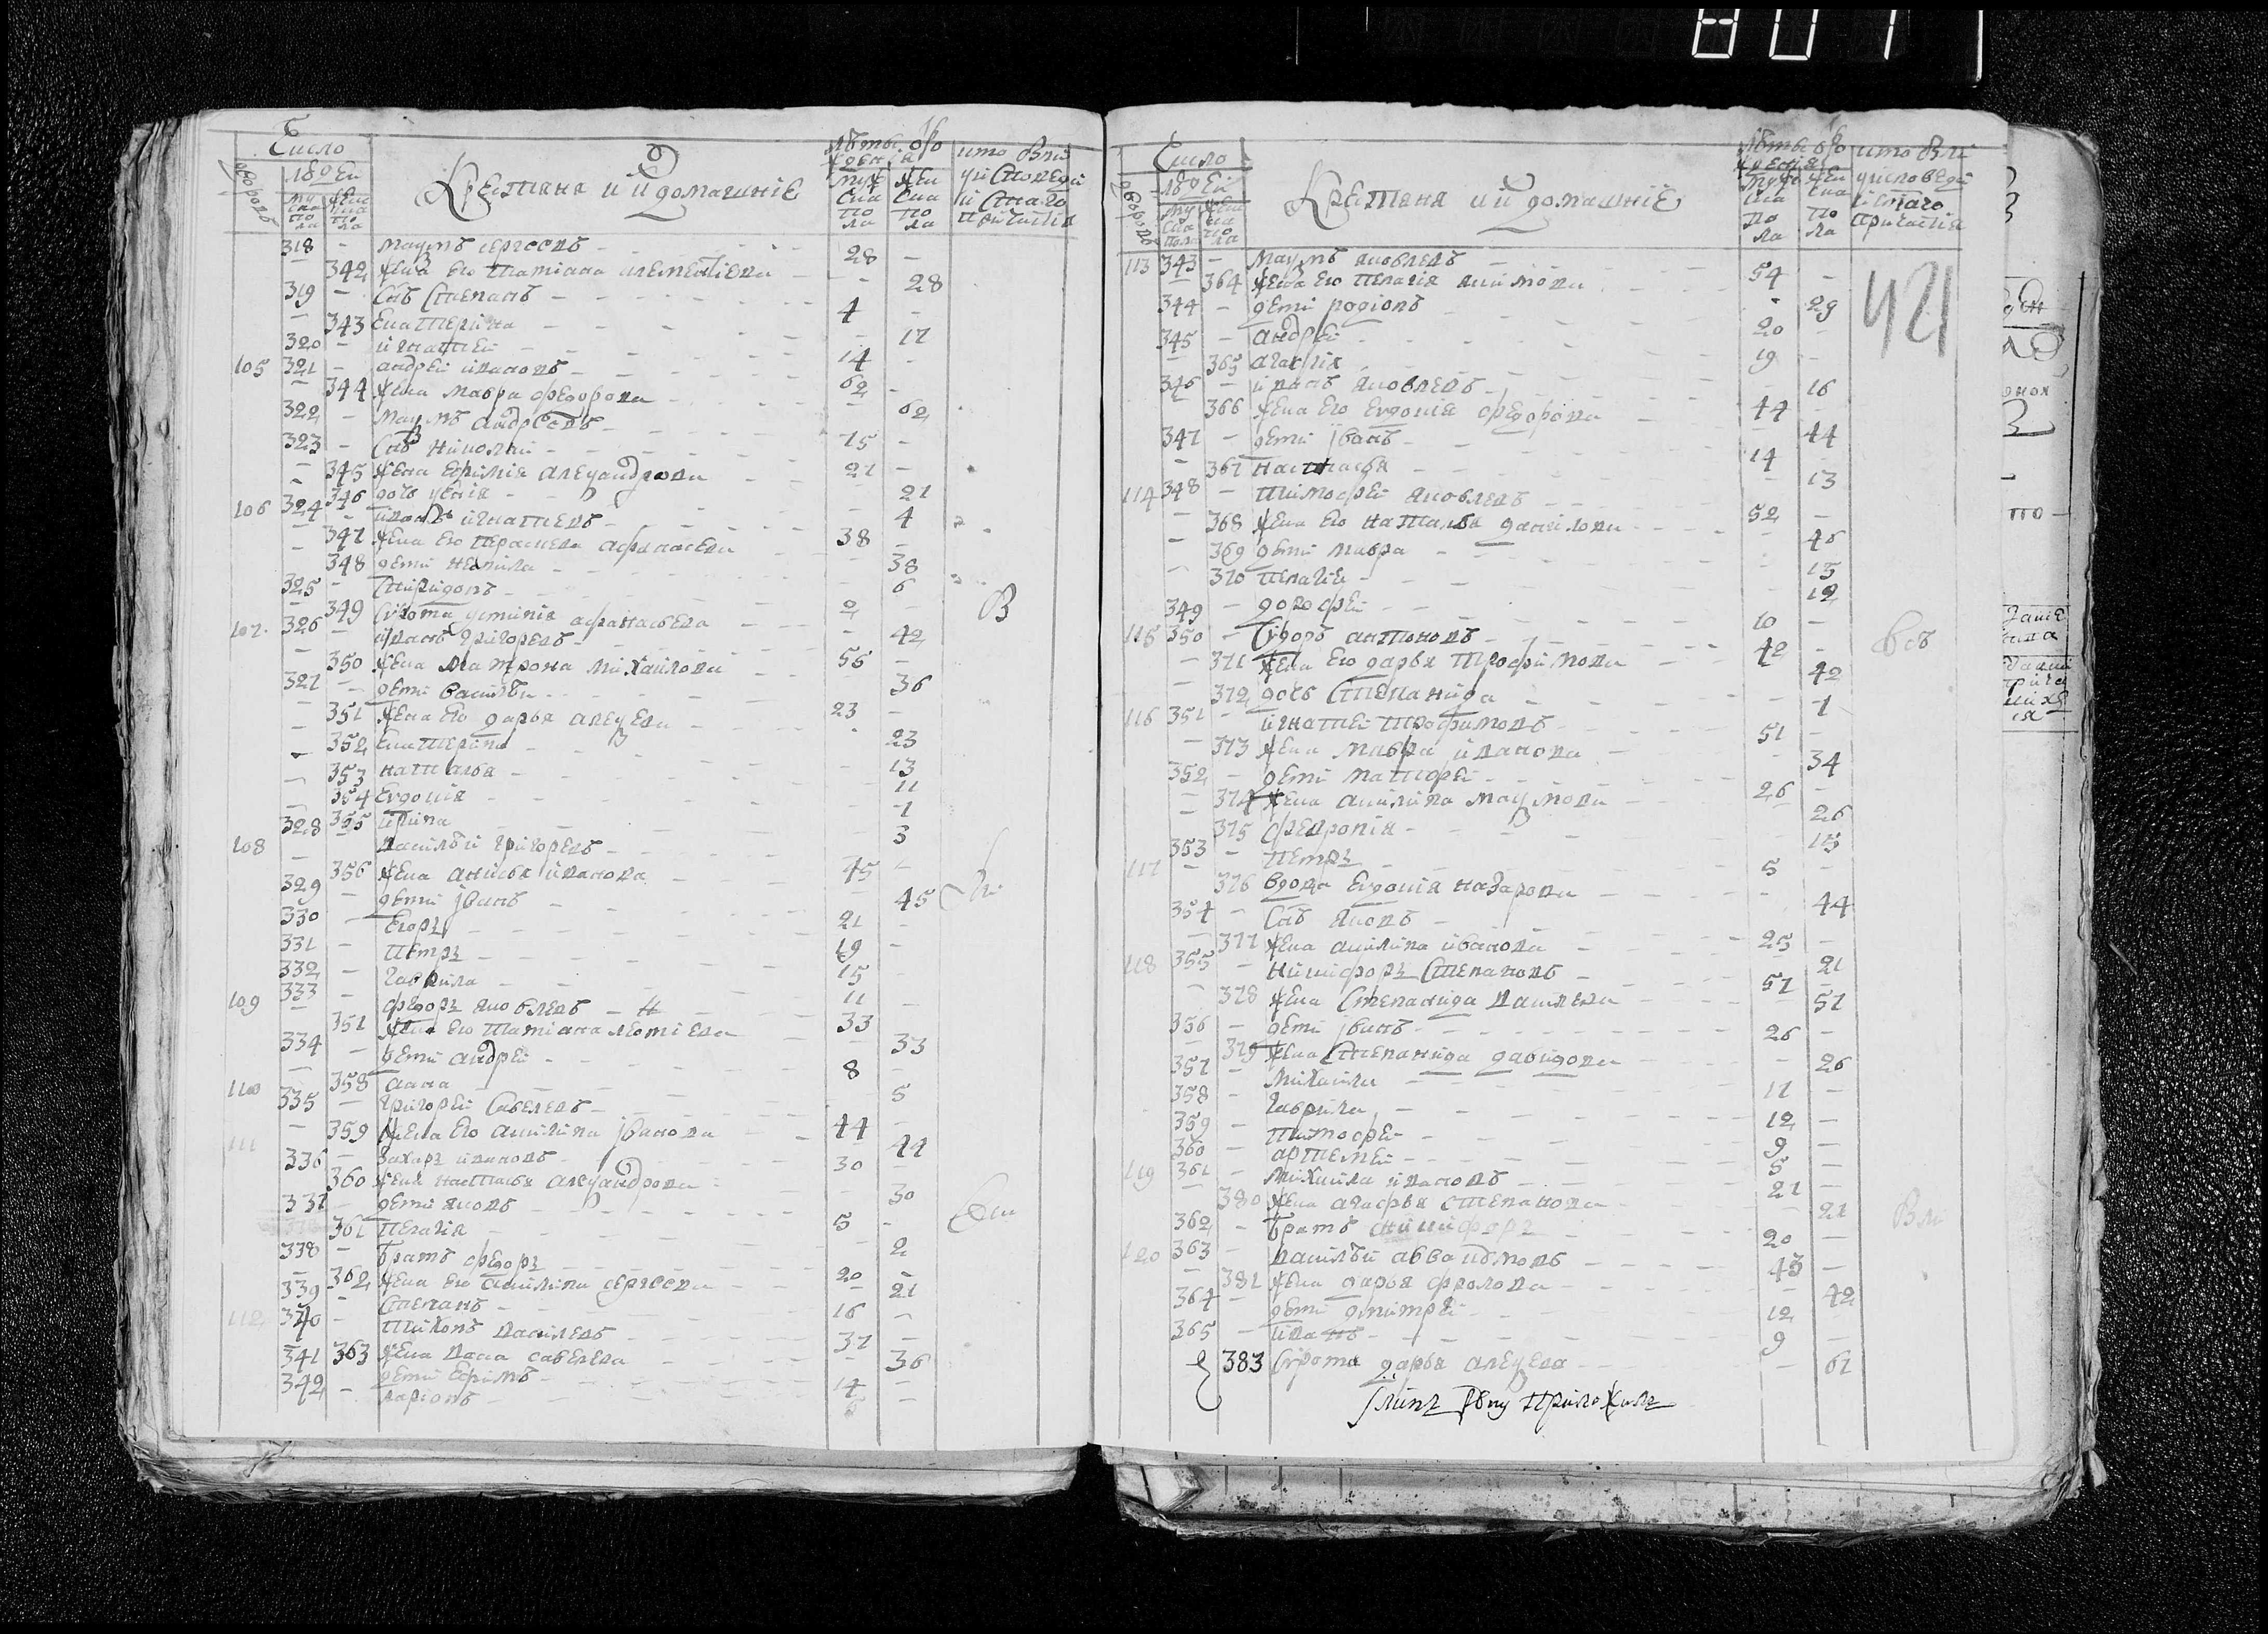 Число
дворовъ
людей
муска пола
женска пола
Крестяне и ихъ домашние
Лѣтъ
муж ска по ла
жен ска по ла
кто былъ у исповеди и святаго причастия
318 - Наумъ Сергеевъ - 28 -
- 342 жена ево Татиана - 28
319 - снъ Степанъ - 4 -
- 343 Екатерина - 12
320 - Игнатей - 14 -
105 321 - Андрей Ивановъ - 62 -
- 344 жена Мавра Федорова - 62
322 - Наумъ Андреевъ - 15 -
323 - снъ Николай - 21 -
- 345 жена Ефимия Александрова - 21
- 346 дочь - 4
106 324 - Иванъ Игнатевъ - 38 -
- 347 жена ево Параскева Афанасева - 38
- 348 дети Ненила - 6
325 - Спиридонъ - 2 -
- 349 сирота Устиния Афанасьева - 42
107 326 - Иванъ Григоревъ - 56 -
- 350 жена Матрона Михайлова - 36
327 - дети Василей - 23 -
- 351 жена ево Дарья Алексева - 23
- 352 Екатерина - 13
- 353 Наталья - 11
- 354 Евдокия - 7
- 355 Ирина - 3
108 328 - Василей Григоревъ - 45 -
- 356 жена Анисья Иванова - 45
329 - дети Иванъ - 21 -
330 - Егоръ - 19 -
331 - Петръ - 15 -
332 - Гаврила - 11 -
109 333 - Федоръ Яковлевъ - 33 -
- 357 жена ево Татиана Леонтиева - 33
334 - дети Андрей - 8 -
- 358 Анна - 5
110 335 - Григорей Савелевъ - 44 -
- 359 жена ево Акилина Иванова - 44
111 336 - Захаръ Ивановъ - 30 -
- 360 жена Настасья Александрова - 30
337 - дети Яковъ - 5 -
- 361 Пелагия - 2
338 - братъ Федоръ - 20 -
- 362 жена ево Акилина Сергеева - 21
339 - Степанъ - 16 -
112 340 - Тихонъ Василевъ - 37 -
341 363 жена Васа Савелева - 36
342 - дети Ефимъ - 14 -
- Ларионъ -
Число
дворовъ
людей
муска пола
жен пола
Крестяне и ихъ домашние
Лѣтъ
муж ска по ла
жен ска по ла
кто былъ у исповеди и святаго причастия
421
113 343 - Наумъ Яковлевъ - 54 -
- 364 жена ево Пелагия Акимова - 29
344 - дети Родионъ - 20 -
345 - Андрей - 19 -
- 365 - 16
346 - Иванъ Яковлевъ - 44 -
- 366 жена ево Евдокия Федорова - 44
347 - дети Иванъ - 14 -
- 367 Настасья - 13
114 348 - Тимофей Яковлевъ - 52 -
- 368 жена ево Наталья Данилова - 46
- 369 дети Мавра - 15
- 370 Пелагия - 12
349 - Дорофей - 10 -
115 350 - Антоновъ - 42 -
- 371 жена ево Дарья Трофимова - 42
- 372 дочь Степанида - 1
116 351 - Игнатей Трофимовъ - 51 -
- 373 жена Мавра Иванова - 34
352 - дети Матфей - 26 -
- 374 жена Акилина Наумова - 26
- 375 Феврония - 15
353 - Петръ - 5 -
117 - 376 вдова Евдокия Назарова - 44
354 - снъ Яковъ - 25 -
- 377 жена Акилина Иванова - 21
118 355 - Никифоръ Степановъ - 57 -
- 378 жена Степанида Василева - 57
356 - дети Иванъ - 26 -
- 379 жена Степанида Давидова - 26
357 - Михаила - 17 -
358 - Гаврила - 12 -
359 - Тимофей - 9 -
360 - Артемей - 5 -
119 361 - Михаила Ивановъ - 21 -
- 380 жена Агафья Степанова - 21
362 - братъ Никифоръ - 20 -
120 363 - Василей - 43 -
- 381 жена Дарья Фролова - 42
364 - дети Дмитрей - 12 -
365 - Иванъ - 9 -
383 сирота Дарья Алексева - 61
руку приложилъ